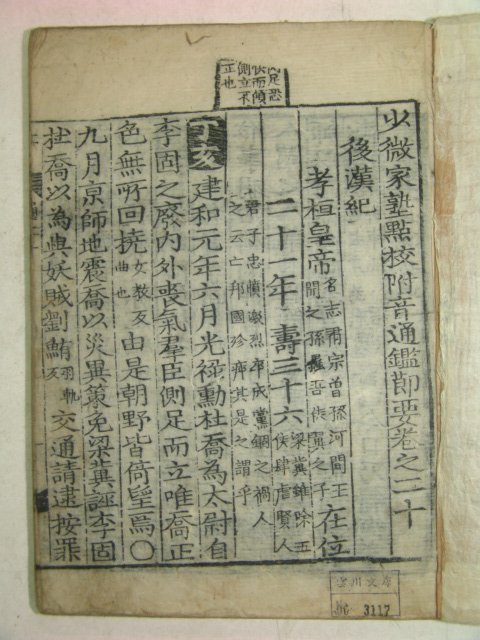 少微家塾點校附音通鑑節要卷之二十
後漢紀
孝桓皇帝名志肅宗曾孫河間王開之孫蠡吾侯翼之子在位
二十一年 壽三十六梁冀雖除五侯肆虐賢人
君子忠憤激烈卒成黨錮之禍人
之云亡邦國殄瘁其是之謂乎
丁亥建和元年六月光祿勳杜喬為太尉自
李固之廢內外喪氣羣臣側足而立唯喬正
色無所回撓女教反曲也由是朝野皆倚望焉○
九月京師地震喬以災異策免梁冀誣李固
杜喬以為與妖賊劉鮪羽軌反交通請逮按罪
足恐
而傾
側立不
正也
川文庫
3117